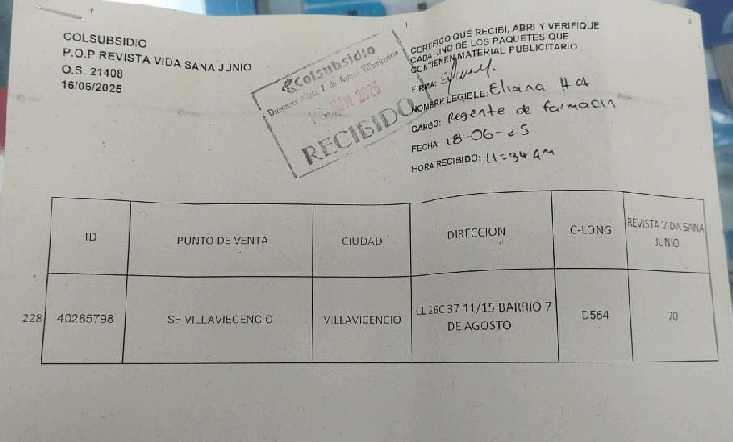 COLSUBSIDIO
P.O.P REVISTA VIDA SANA JUNIO
O.S. 21408
16/06/2025
Colsubsidio
RECIBIDO
CERTIFICO QUE RECIBI, ABRI Y VERIFIQUE
CADA UNO DE LOS PAQUETES QUE
CONTIENEN MATERIAL PUBLICITARIO
FIRMA:
NOMBRE LEGIBLE: Eliana
CARGO: Regente de farmacia
FECHA 18-06-25
HORA RECIBIDO: 11:34 am
ID PUNTO DE VENTA CIUDAD DIRECCION C-LONG REVISTA VIDA SANA
JUNIO
228 40285798 SF VILLAVICENCIO VILLAVICENCIO CL 26C 37 11/15 BARRIO 7
DE AGOSTO
D564 70